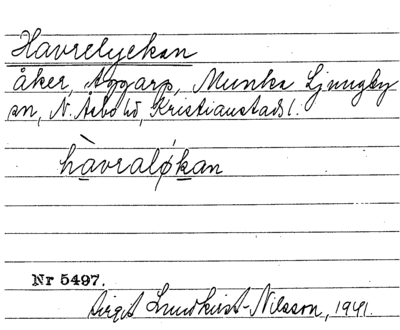 Havrelyckan
åker, Äggarp, Munka Ljungby
sn, N. Åsbo hd, Kristianstads l.
hàvraløkan
Nr 5497.
Birgit Lundkvist-Nilsson, 1941.